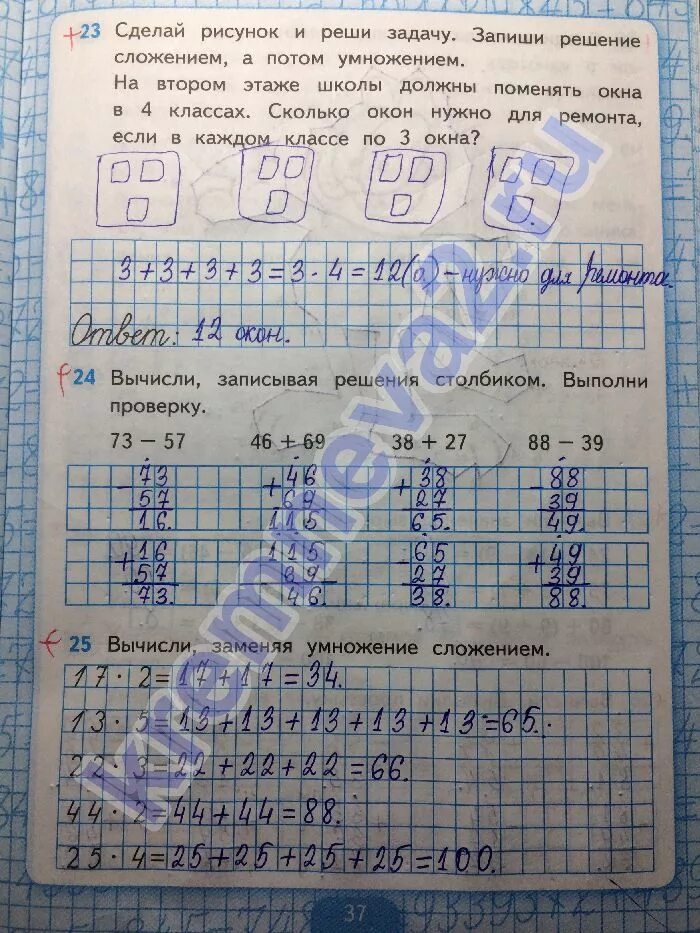 +23 Сделай рисунок и реши задачу. Запиши решение
сложением, а потом умножением.
На втором этаже школы должны поменять окна
в 4 классах. Сколько окон нужно для ремонта,
если в каждом классе по 3 окна?
3+3+3+3=3·4=12(о)-нужно для ремонта.
Ответ: 12 окон.
24 Вычисли, записывая решения столбиком. Выполни
проверку.
73 − 57 46 + 69 38 + 27 88 − 39
-73 +46 +38 -88
57 69 27 39
16. 115 65. 49.
+16 115 -65 +49
57 69- 27 39
73. 46. 38. 88.
25 Вычисли, заменяя умножение сложением.
17·2=17+17=34.
13·5=13+13+13+13+13=65.
22·3=22+22+22=66.
44·2=44+44=88.
25·4=25+25+25+25=100.
37
kremneva2.ru